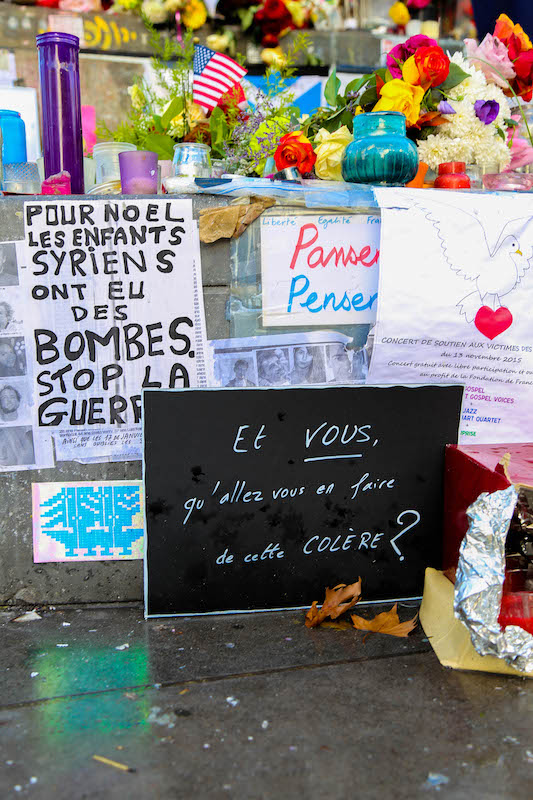 POUR NOEL
LES ENFANTS
SYRIENS
ONT EU
DES
BOMBES.
STOP LA
GUERR
Liberté Égalité
Panser
Penser
CONCERT DE SOUTIEN AUX VICTIMES DES
du 13 novembre 2015
Concert gratuit avec libre participation
au profit de la Fondation de France
GOSPEL
GOSPEL VOICES
JAZZ
ART QUARTET
Et VOUS,
qu'allez vous en faire
de cette COLÈRE ?